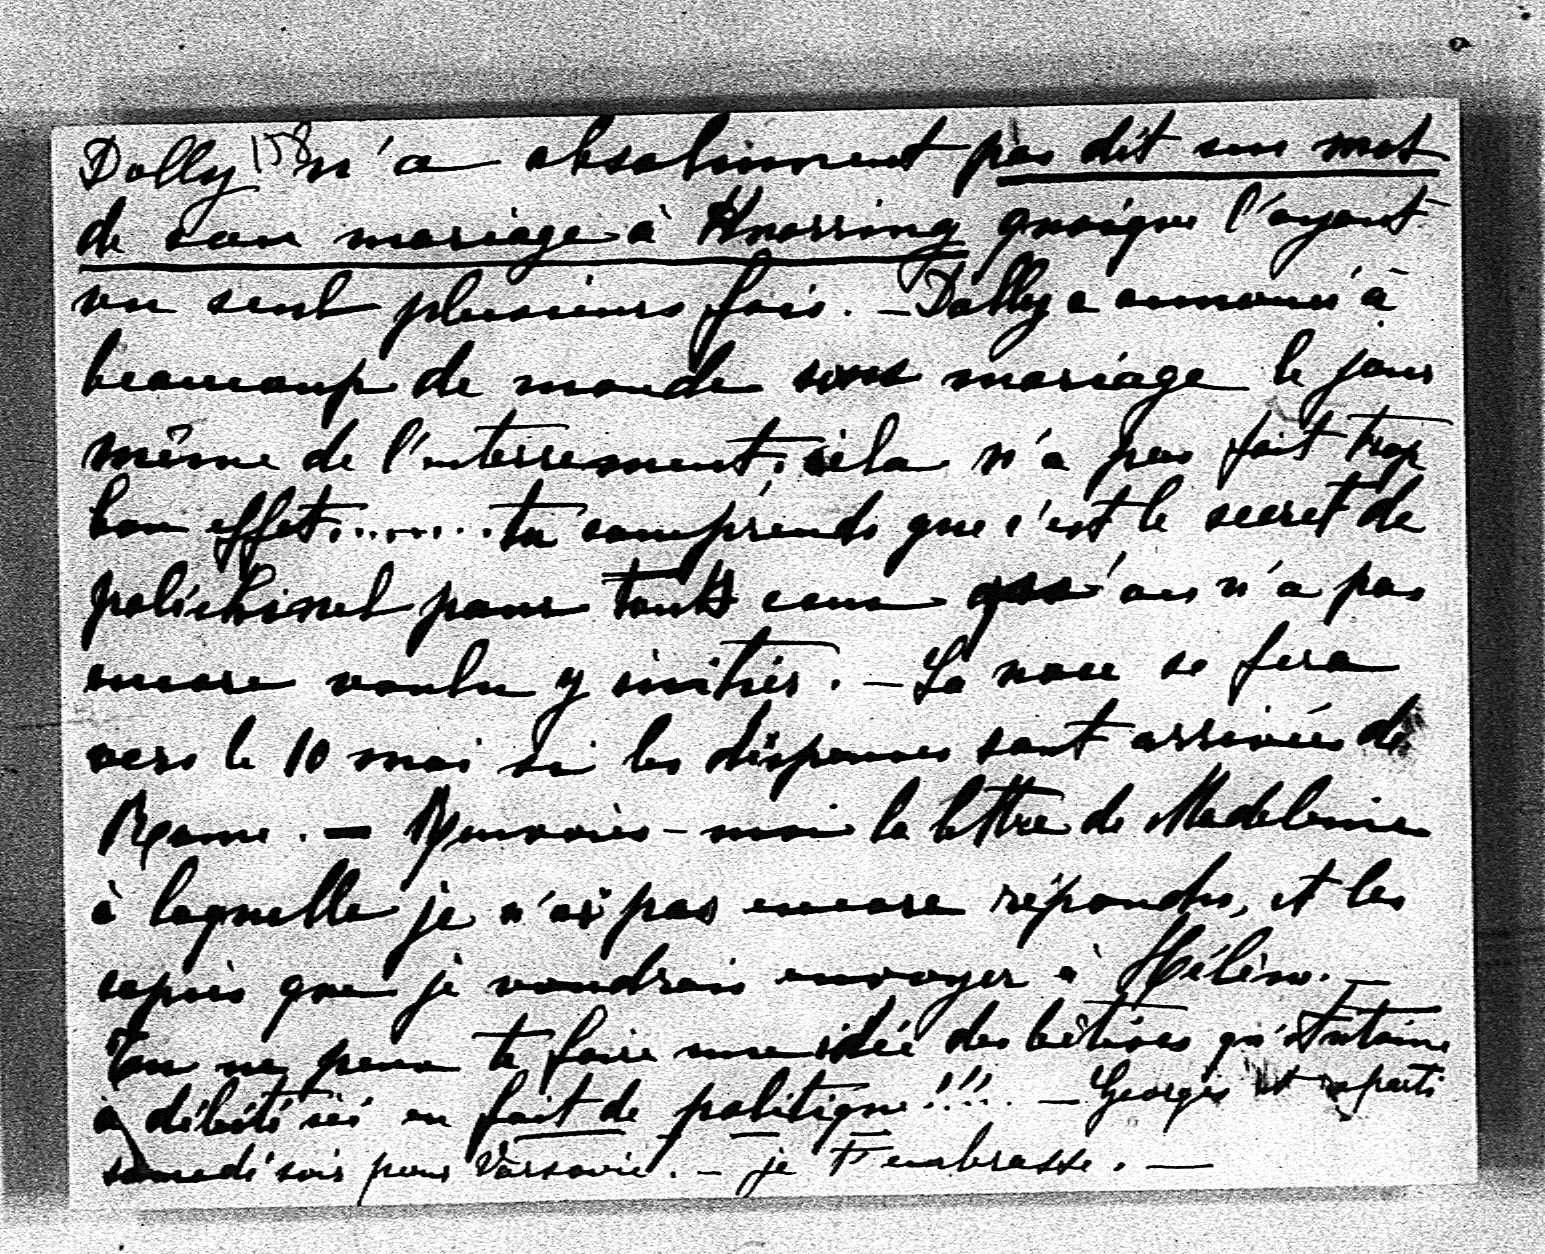 158
Dolly n'a absolument pas dit un mot
de son mariage à Knorring quoique l'ayant
vu seul plusieurs fois. — Dolly a annoncé à
beaucoup de monde son mariage le jour
même de l'enterrement, cela n'a pas fait trop
bon effet........ tu comprends que c'est le secret de
polichinel pour tous ceux qu'on n'a pas
encore voulu y initier. — La noce se fera
vers le 10 mai si les dispenses sont arrivées de
Rome. — Renvoies-moi la lettre de Madeleine
à laquelle je n'ai pas encore répondu, et les
copies que je voudrais envoyer à Hélène. —
Tu ne peux te faire une idée des bêtises qu'Antoine
a débité ici en fait de politique!!!. — Georges est reparti
samedi soir pour Varsovie. — je t'embrasse. —